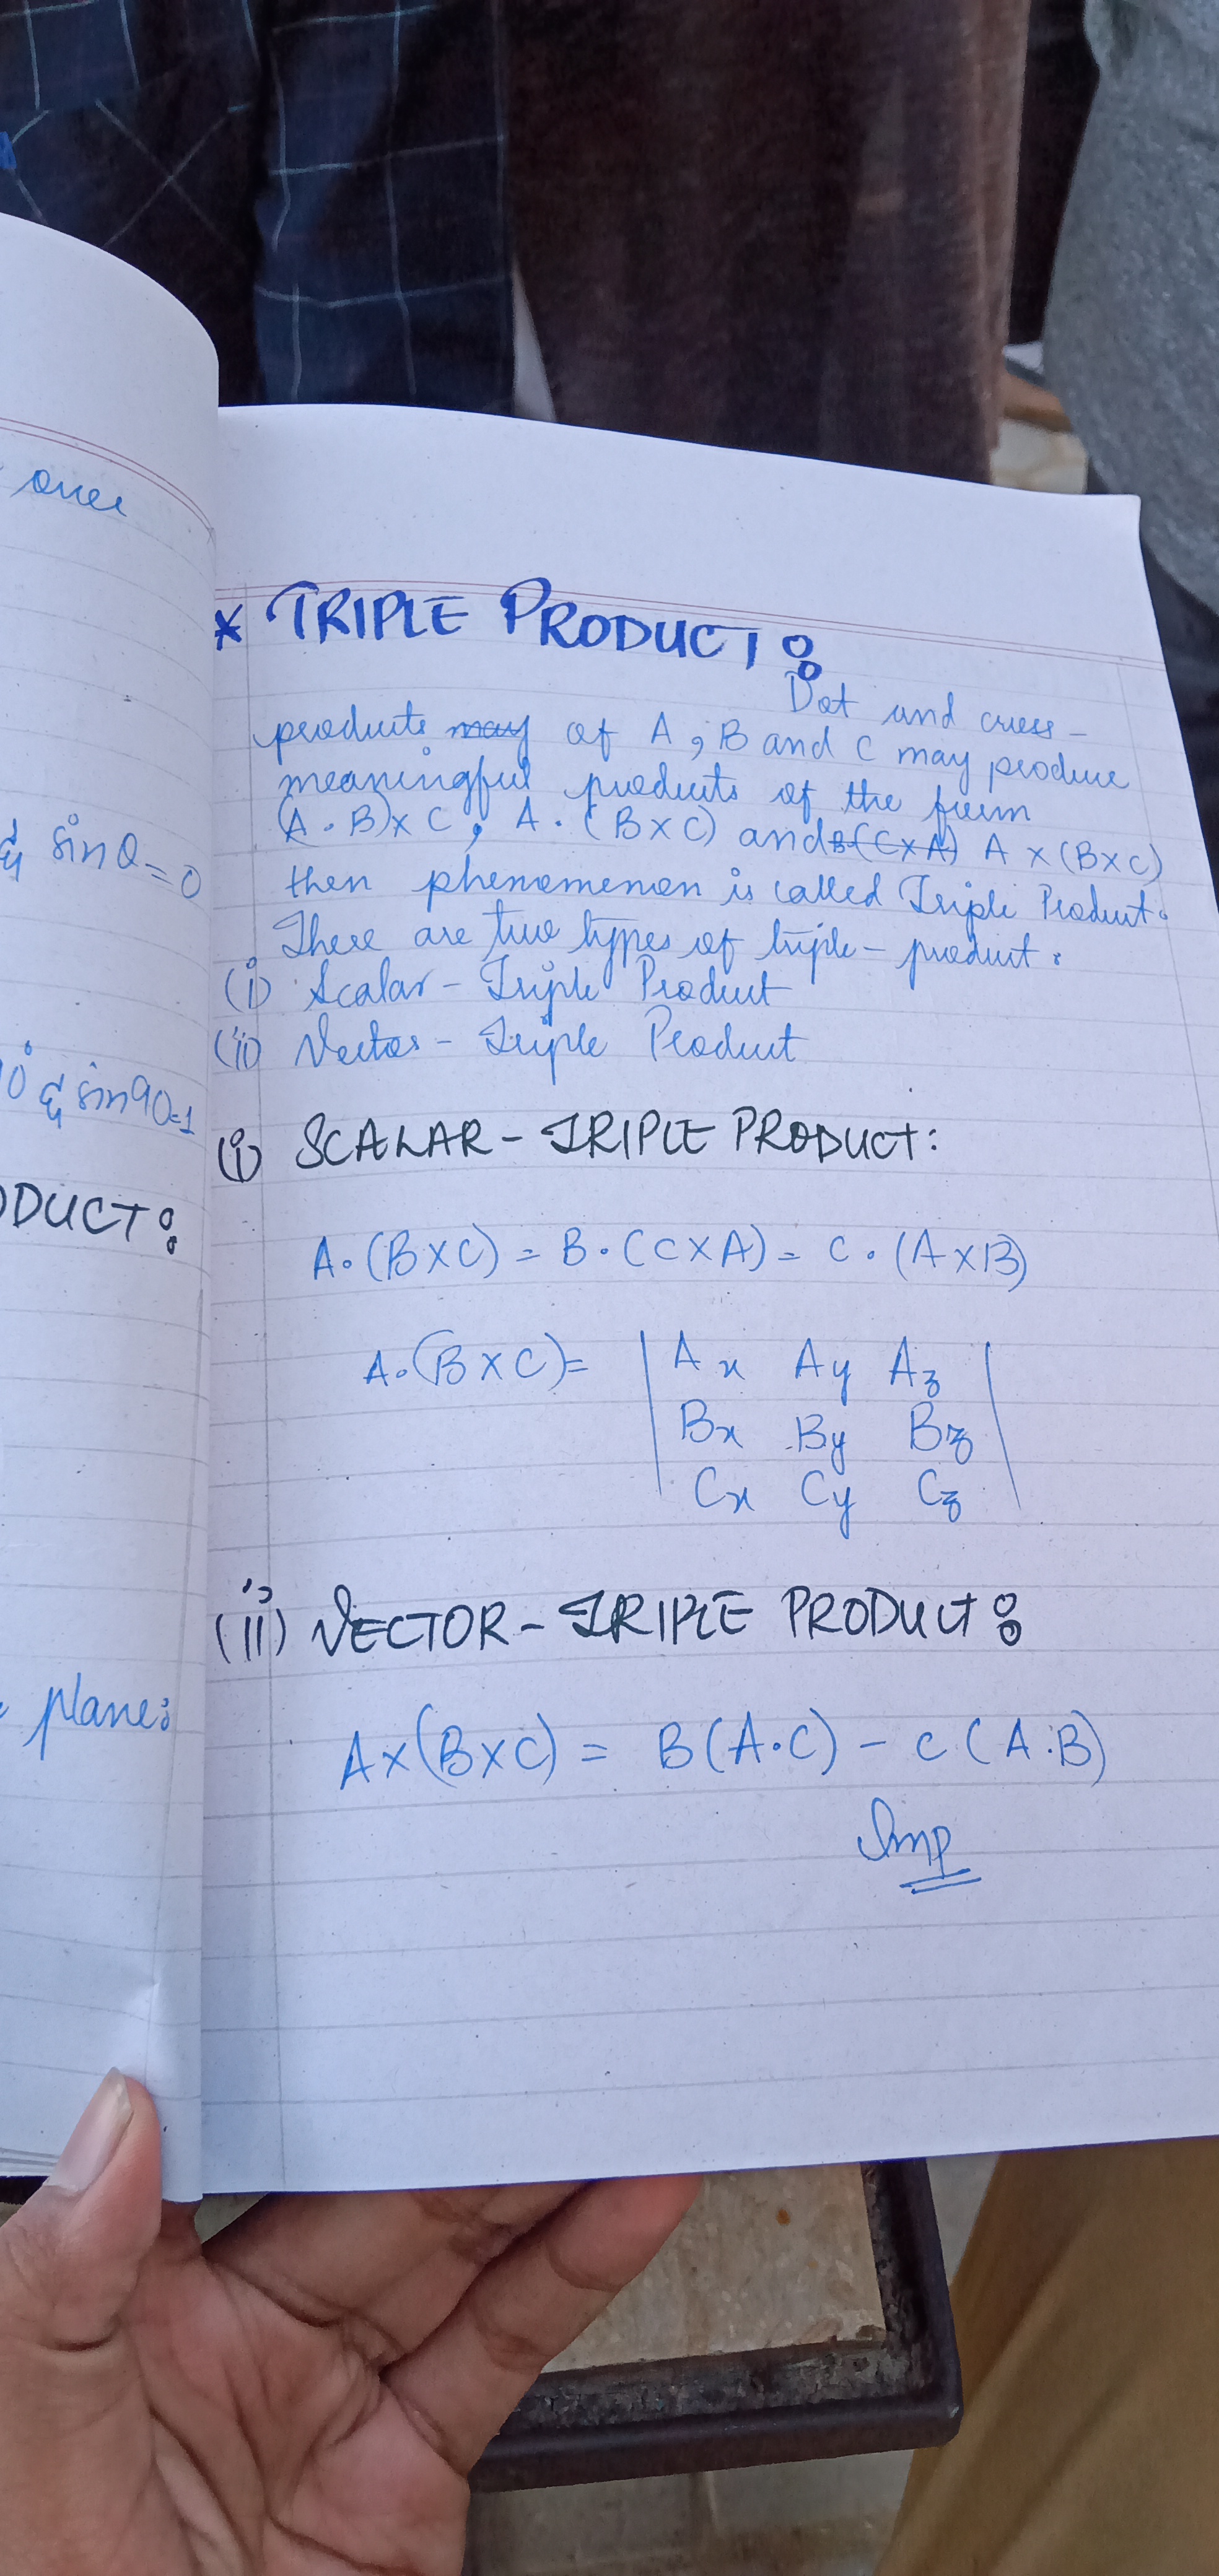 over
sinθ=0
& sin90=1
ODUCT:
plane:
* TRIPLE PRODUCT:
Dot and cross-
products may of A, B and C may produce
meaningful products of the form
(A . B)x C, A . (B x C) and B.(C x A) A x (B x C)
then phenomenon is called Triple Product.
There are two types of triple-product:
(i) Scalar-Triple Product
(ii) Vector-Triple Product
(i) SCALAR-TRIPLE PRODUCT:
A.(B x C) = B.(C x A) = C.(A x B)
A.(B x C) = | Ax Ay Az |
Bx By Bz
Cx Cy Cz
(ii) VECTOR-TRIPLE PRODUCT:
A x (B x C) = B(A.C) - C(A.B)
Imp